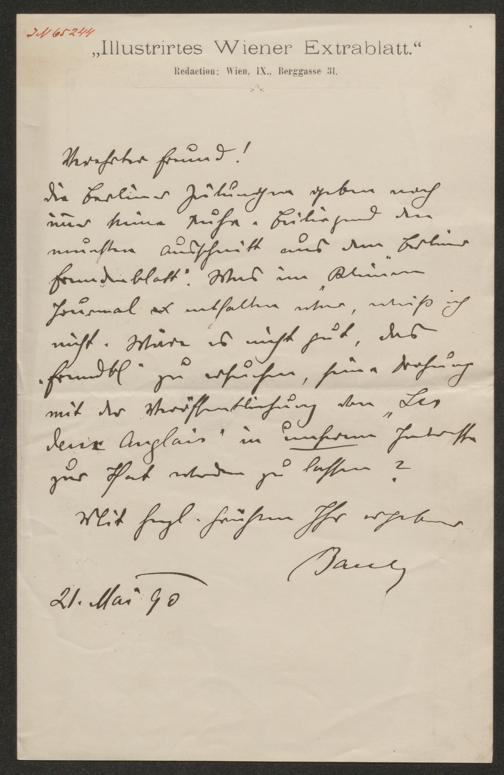 JN 65244
„Illustrirtes Wiener Extrablatt.“
Redaction: Wien, IX., Berggasse 31.
Verehrter Freund!
die Berliner Zeitungen geben noch
immer keine Ruhe. Beiliegend den
neuesten Ausschnitt aus dem Berliner
Fremdenblatt". Was im „Kleinen
Journal" enthalten war, weiß ich
nicht. Wäre es nicht gut, das
„Fremdbl" zu ersuchen, seine Drohung
mit der Veröffentlichung von „Les
deux Anglais" in unserem Interesse
zur That werden zu lassen?
Mit herzl. Grüßen Ihr ergebener
21. Mai 90